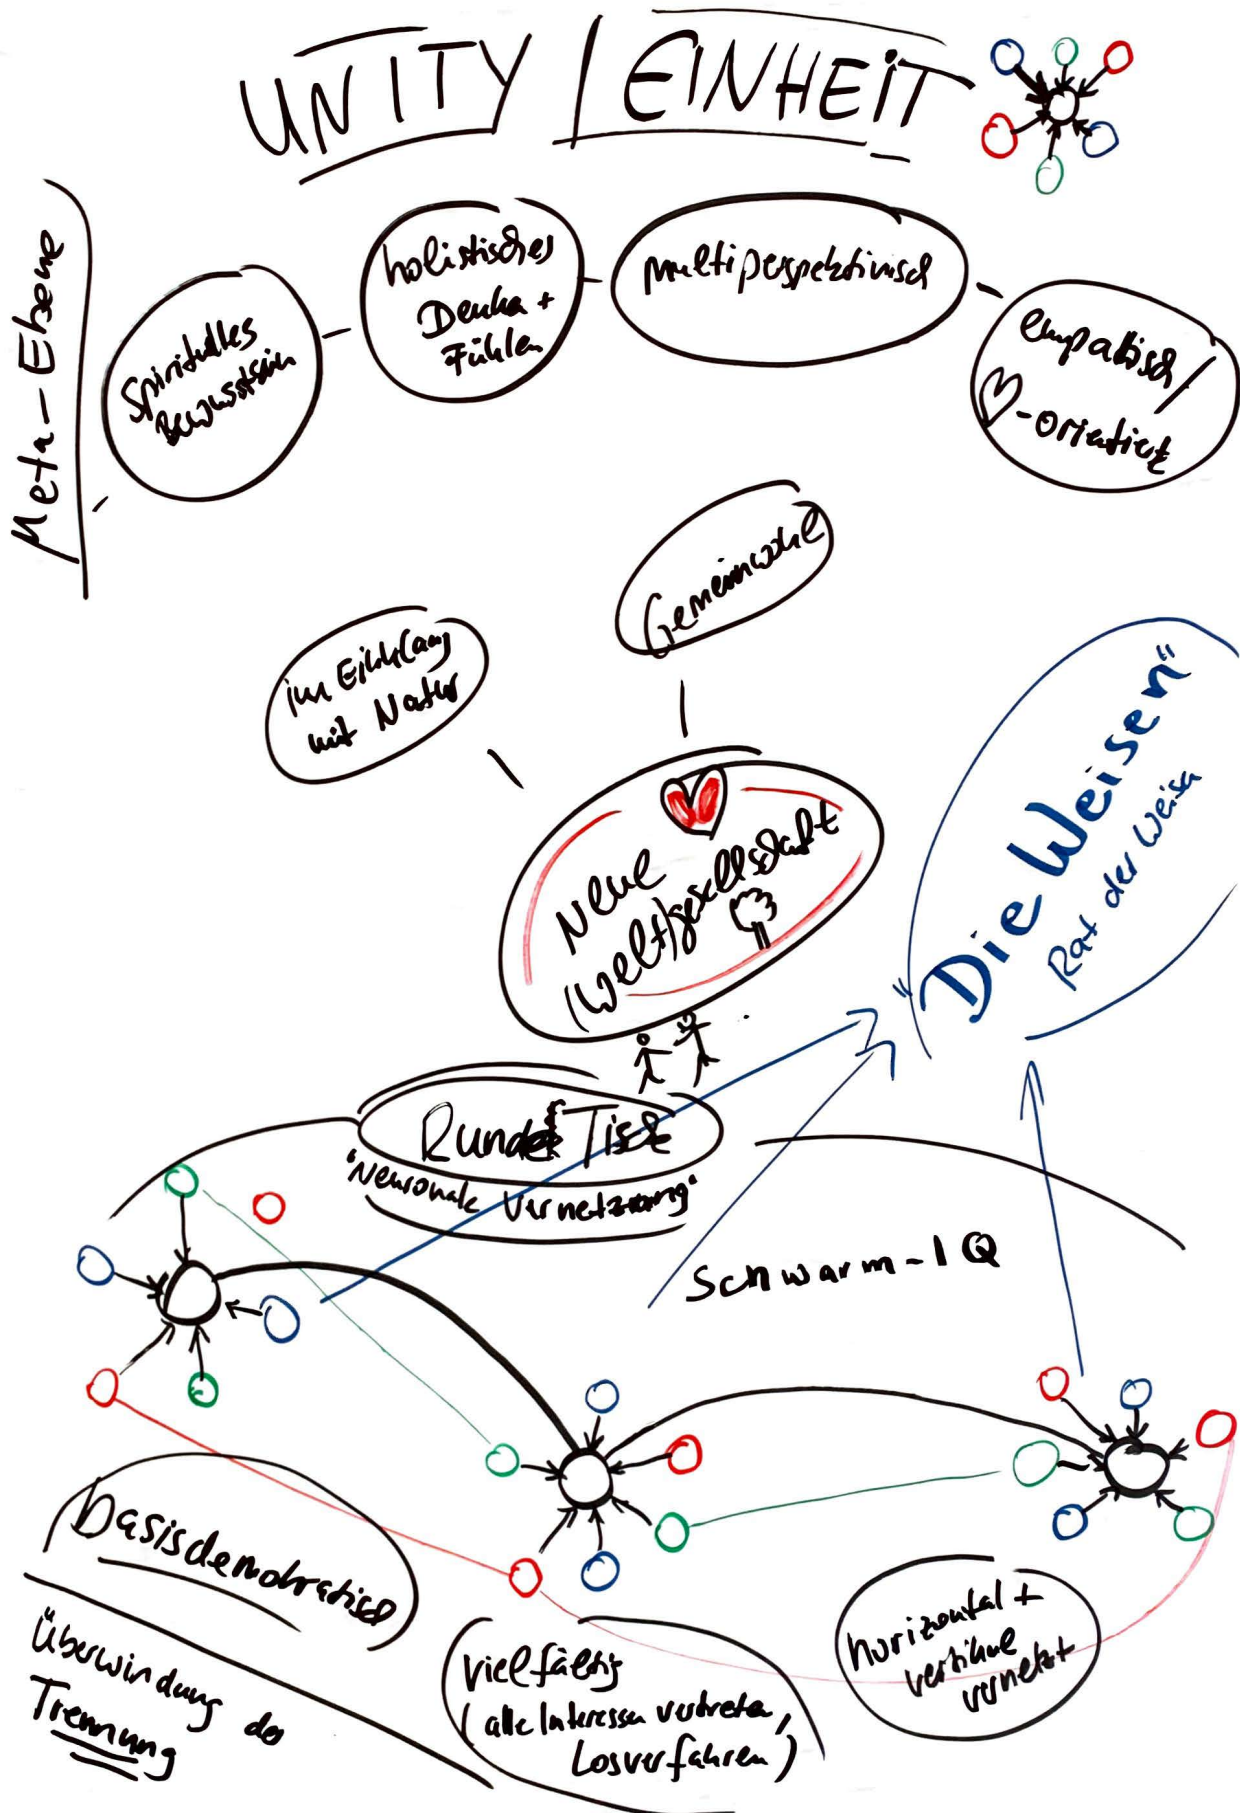 UNITY / EINHEIT
Meta-Ebene
Spirituelles
Bewusstsein
holistisches
Denken +
Fühlen
multiperspektivisch
empathisch /
-orientiert
Gemeinwohl
im Einklang
mit Natur
Neue
(Welt)gesellschaft
"Die Weisen"
Rat der Weisen
Runder Tisch
"Neuronale Vernetzung"
Schwarm-IQ
basisdemokratisch
Überwindung der
Trennung
vielfältig
(alle Interessen vertreten,
Losverfahren)
horizontal +
vertikal
vernetzt